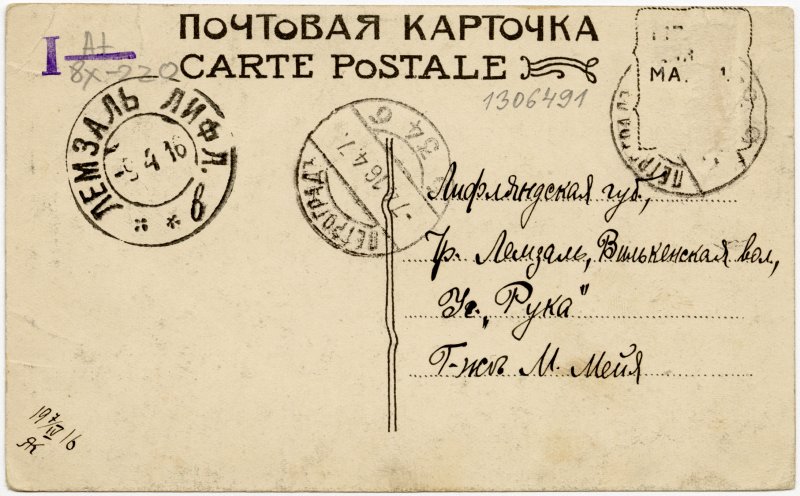 ПОЧТОВАЯ КАРТОЧКА
CARTE POSTALE
I
A+
8X-220
1306491
МА
ЛЕМЗАЛЬ ЛИФЛ.
9 4 16
в
ПЕТРОГРАДЪ
-7. 4 16
34 6
ПЕТРОГРАДЪ
Лифляндская губ,
Гр. Лемзаль, Вилькенская вол,
Уг. „Рука"
Г-жѣ М. Мейя
19 7/IV 16
ЯК